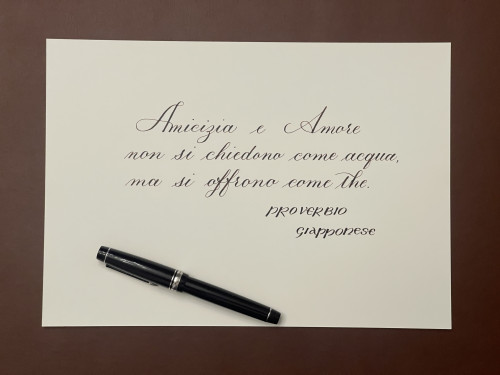 Amicizia e Amore
non si chiedono come acqua,
ma si offrono come the.
PROVERBIO
GIAPPONESE